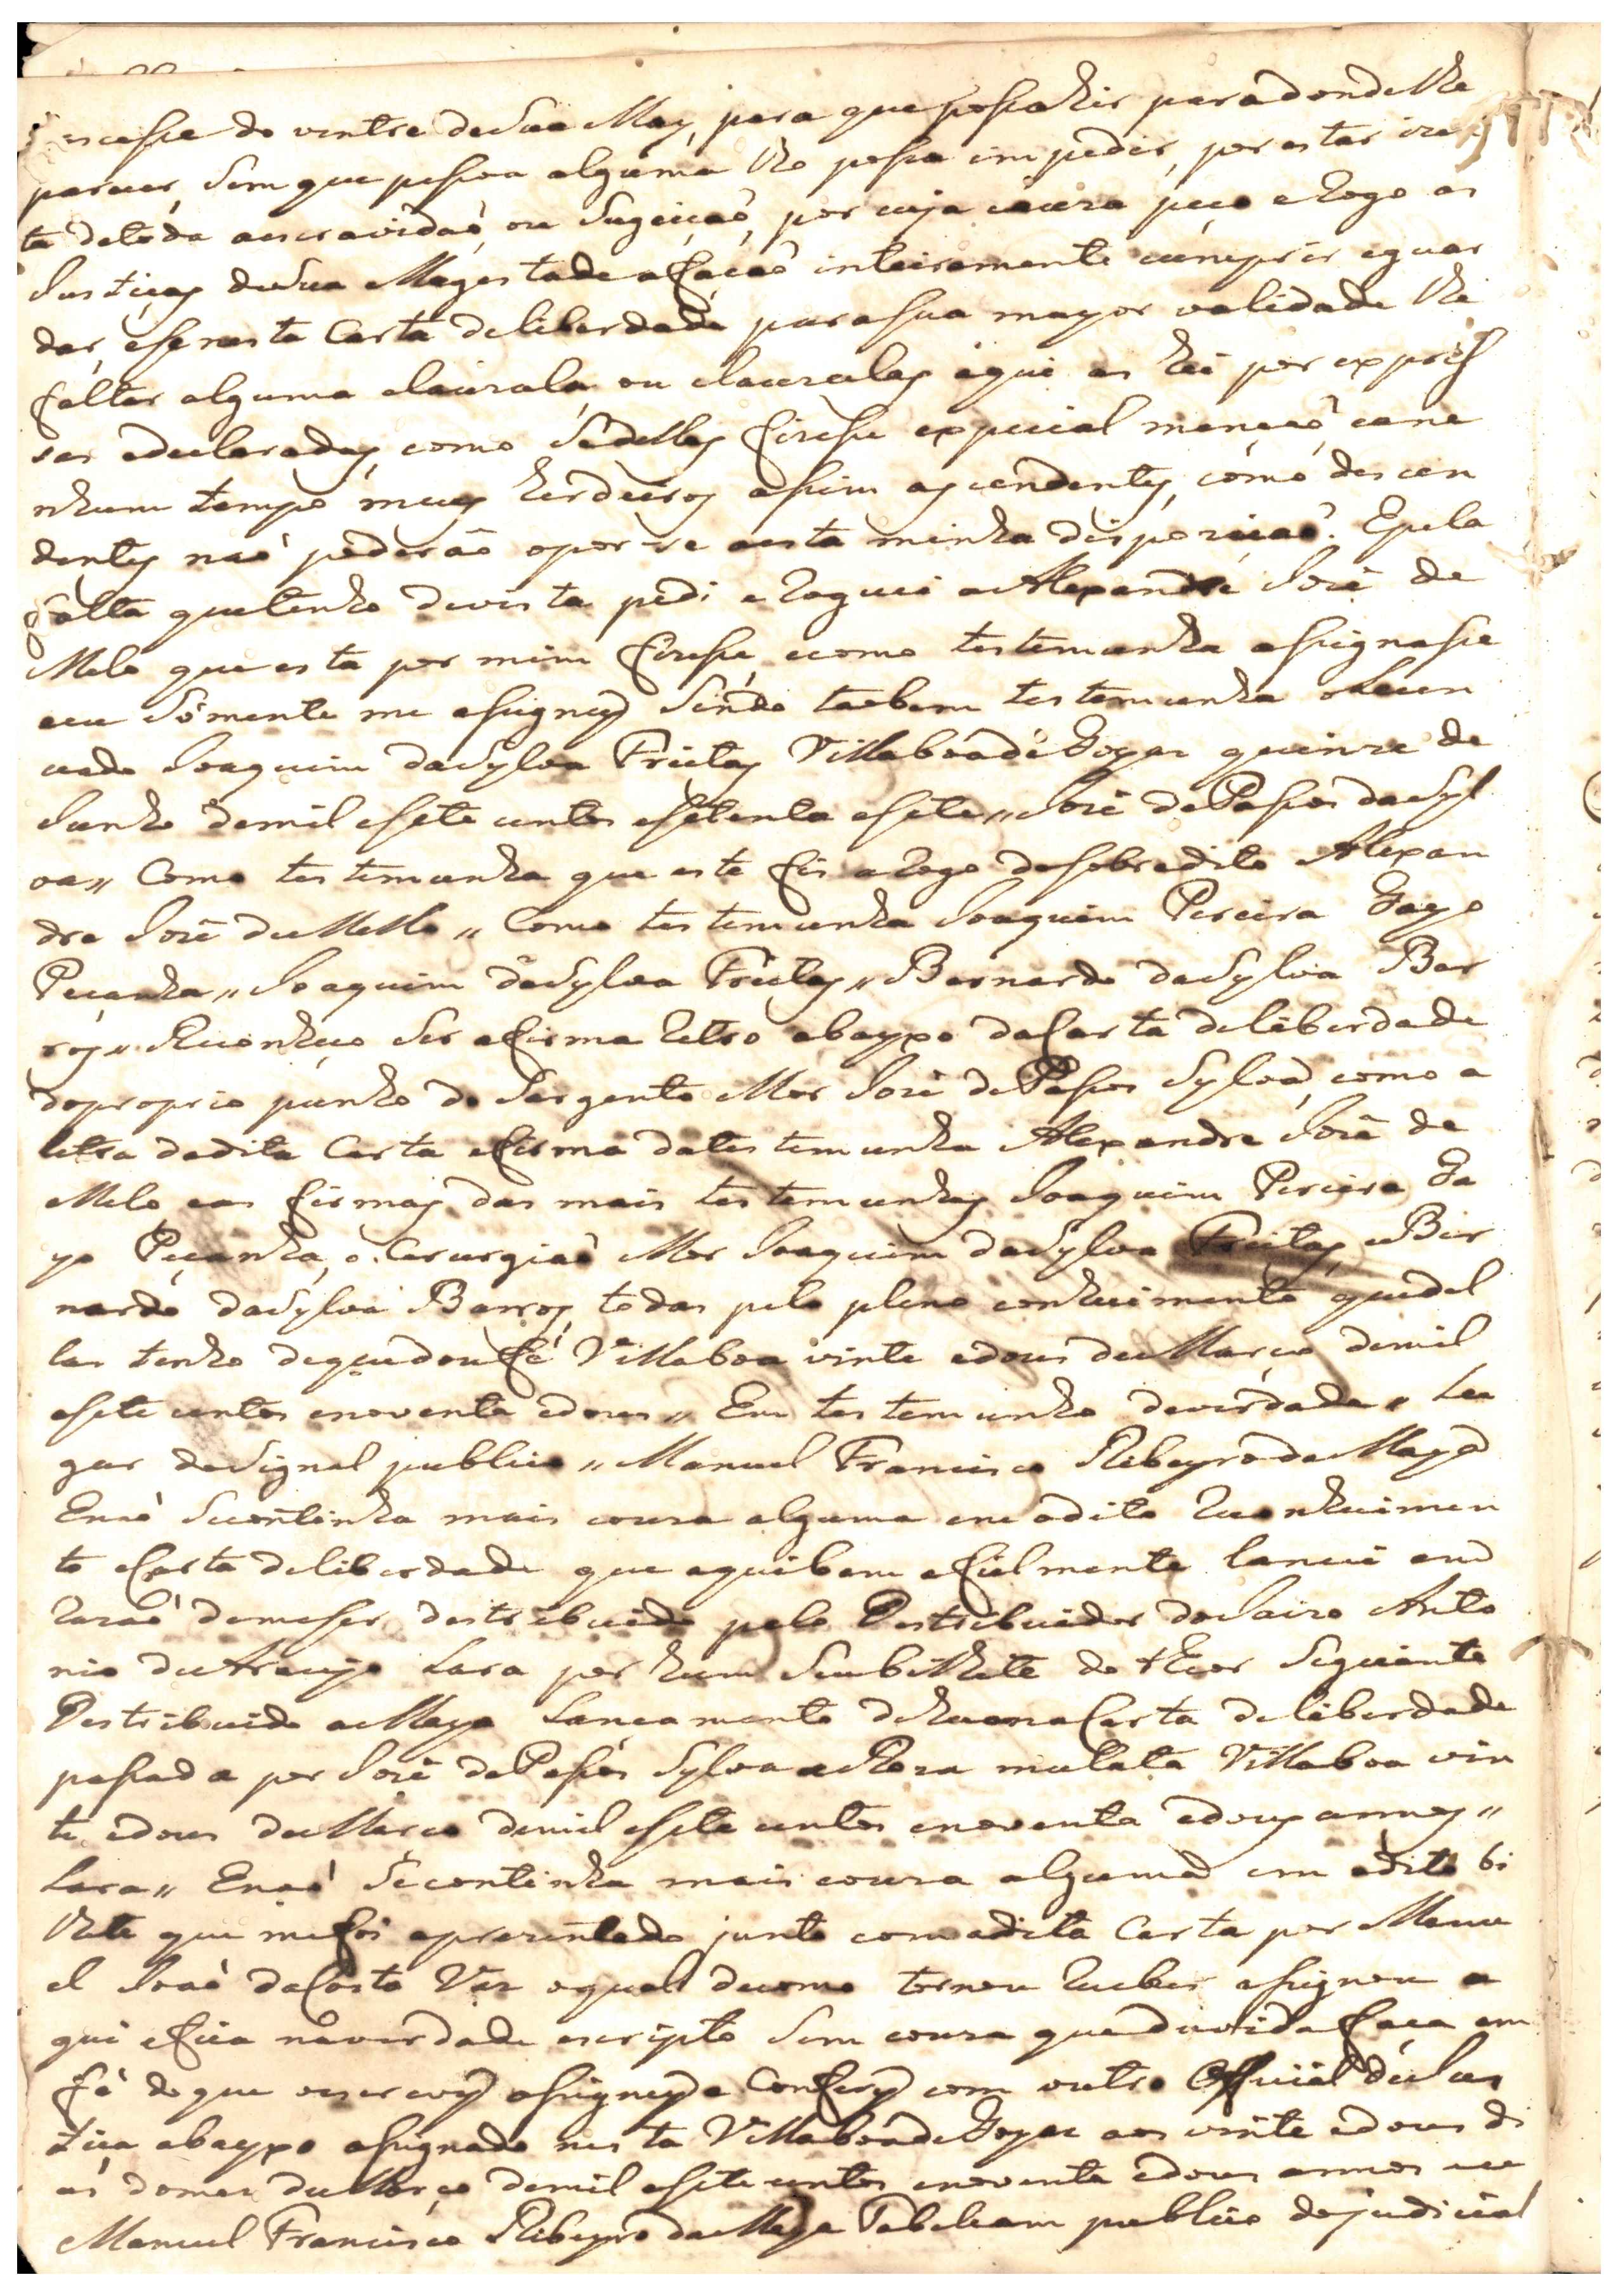 nascesse do ventre de Sua May, para que possa hir para donde lhe
parecer, Sem que pessoa alguma lho possa impedir, por estar izen
ta detoda aescravidaõ, ou Sugeiçaõ, por cuja cauza peço eRogo as
Justiças deSua Magestade afaçaõ inteiramente cumprir eguar
dar, esenesta Carta deliberdade parasua mayor validade lhe
faltar alguma clauzula, ou clauzulas aqui as hei por expres
sas edeclaradas, como Sedellas fizesse expecial mençaõ, eane
nhum tempo meus herdeiros assim ascendentes, como descen
dentes naõ poderaõ opor-se aesta minha dispoziçaõ. Epela
falta quetenho devista pedi eRoguei aAlexandre Jozé de
Melo que esta por mim fizesse, ecomo testemunha assignasse
eeu Sómente me assigney Sendo taobem testemunha oLecen
ceado Joaquim daSylva Freitas VillaboadeGoyaz quinze de
Junho demil esete centos esetenta esete,, Jozé dePassos daSyl
va,, Como testemunha que este fis aRogo dosobredito Alexan
dre Jozé deMello,, Como testemunha Joaquim Pereira Gayo
Peçanha,, Joaquim daSylva Freitas,, Bernardo daSylva Bar
ros,, Reconheço Ser afirma Retro abayxo daCarta deliberdade
doproprio punho do Sargento Mor Jozé dePassos Sylva, como a
letra dadita Carta efirma datestemunha Alexandre Jozé de
Melo eas firmas das mais testemunhas Joaquim Pereira Ga
yo Peçanha, o Cerurgiaõ Mor Joaquim daSylva Freitas, eBer
nardo daSylva Barros, todas pelo pleno conhecimento quedel
las tenho dequedoufé Villaboa vinte edous deMarço demil
esete centos enoventa edous,, Em testemunho deverdade,, Lu
gar doSignal publico,, Manuel Francisco Ribeyro daMaya
Enaõ Secontinha mais couza alguma em odito Reconhecimen
to eCarta deliberdade que aquibem efielmente lancei em
Razaõ demeser destribuida pelo Destribuidor doJuizo Anto
nio deAraujo Lara por hum Seubilhete do theor Seguinte
Destribuida aMaya Lancamento dehuma Carta deliberdade
passada por Jozé dePassos Sylva aRoza mulata Villaboa vin
te edous deMarço demil esete centos enoventa edous annos,,
Lara,, Enaõ Secontinha mais couza alguma em odito bi
lhete que mefoi aprezentado junto comadita Carta por Manu
el Joaõ daCosta Vaz oqual decomo tornou Receber assignou a
qui efica naverdade escripto Sem couza queduvidafaça em
fé do que oescrevy assigney e Confery com outro Official deJus
tica abayxo assignado nesta VillaboadeGoyaz aos vinte edous di
as domes deMarço demil esete centos enoventa edous annos eeu
Manuel Francisco Ribeyro daMaya Tabeliam publico dojudicial